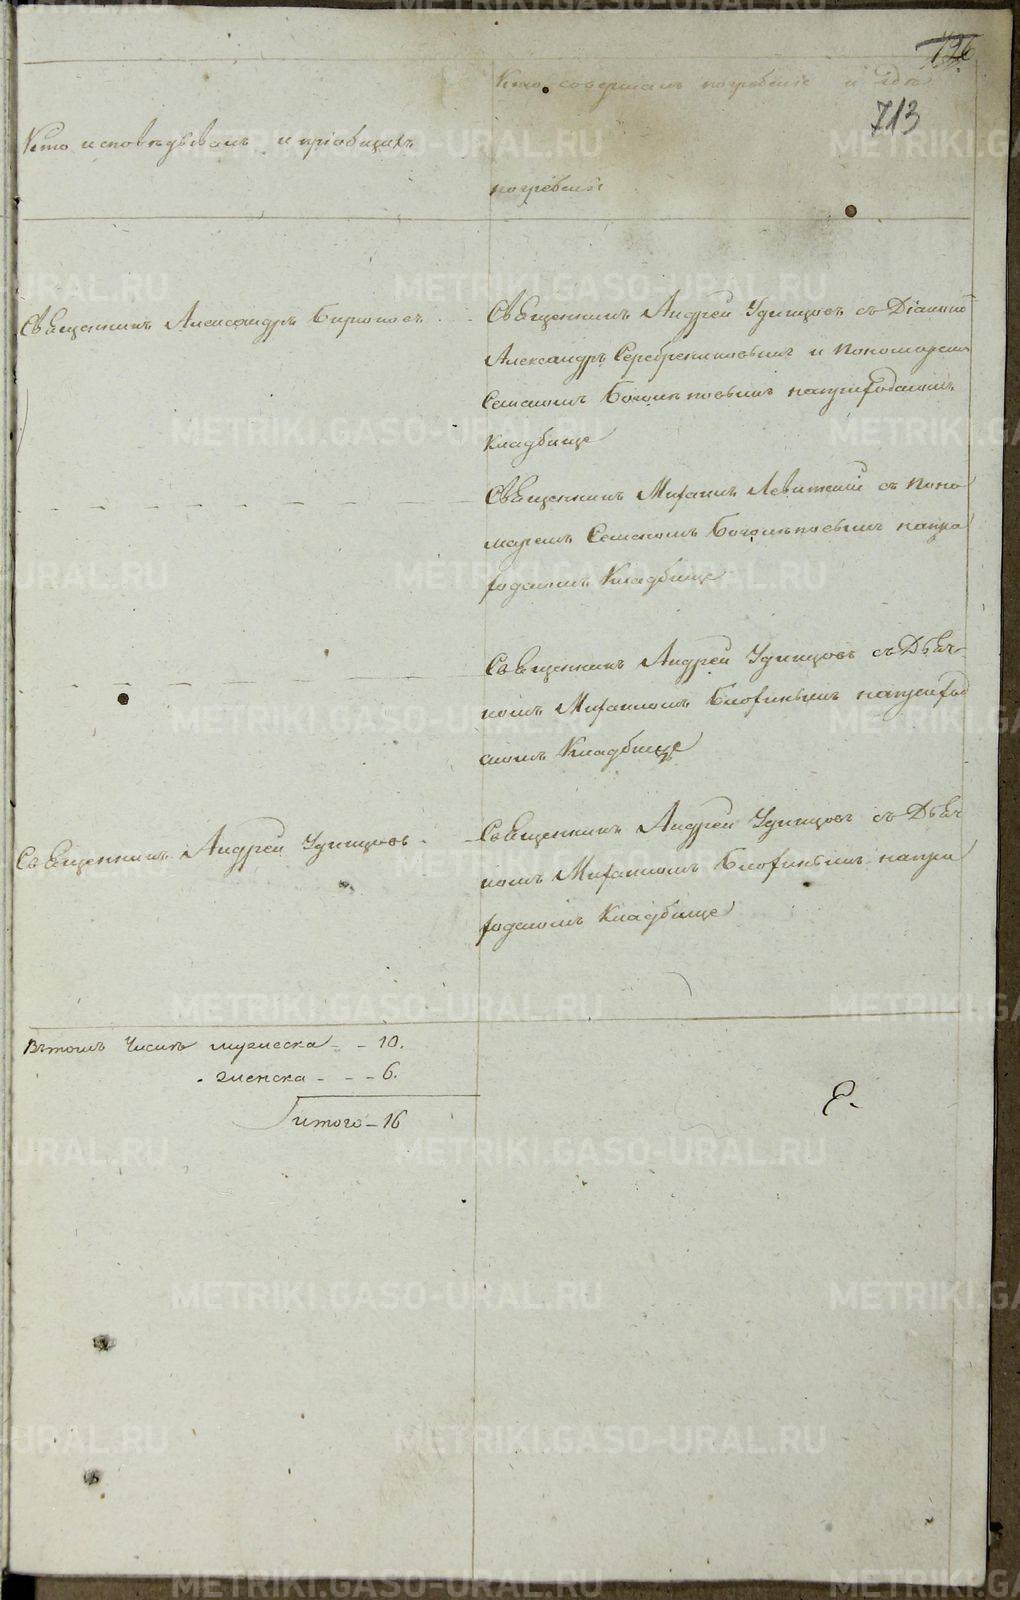 726
713
Кто исповѣдывалъ и пріобщалъ
Кто совершалъ погребеніе и гдѣ
погребены
Священникъ Александръ Бирюковъ
Священникъ Андрей Удинцовъ съ Діакономъ
Александръ Серебрениковымъ и пономаремъ
Семеномъ Боголѣповымъ наприходскомъ
Кладбище
Священникъ Михаилъ Левитскій съ Поно
маремъ Семеномъ Боголѣповымъ напри
ходскомъ Кладбище
Священникъ Андрей Удинцовъ съ Дьяч
комъ Михаиломъ наприход
скомъ Кладбище
Священникъ Андрей Удинцовъ
Священникъ Андрей Удинцовъ съ Дьяч
комъ Михаиломъ напри
ходскомъ Кладбище
Въ томъ Числѣ мужеска - - 10.
женска - - - 6.
итого - 16
METRIKI.GASO-URAL.RU